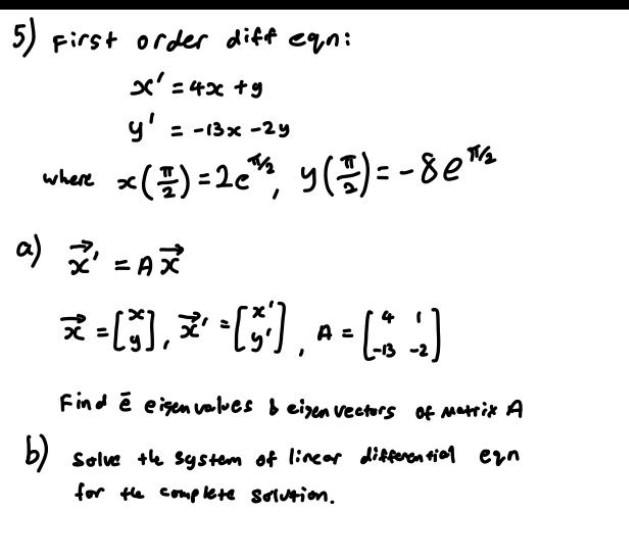 5) First order diff eqn:
x' = 4x + y
y' = -13x - 2y
where x(π/2) = 2e^π/2, y(π/2) = -8e^π/2
a) x⃗' = A x⃗
x⃗ = [x y], x⃗' = [x' y'], A = [4 1 -13 -2]
Find ē eigenvalues & eigenvectors of Matrix A
b) Solve the system of linear differential eqn
for the complete solution.